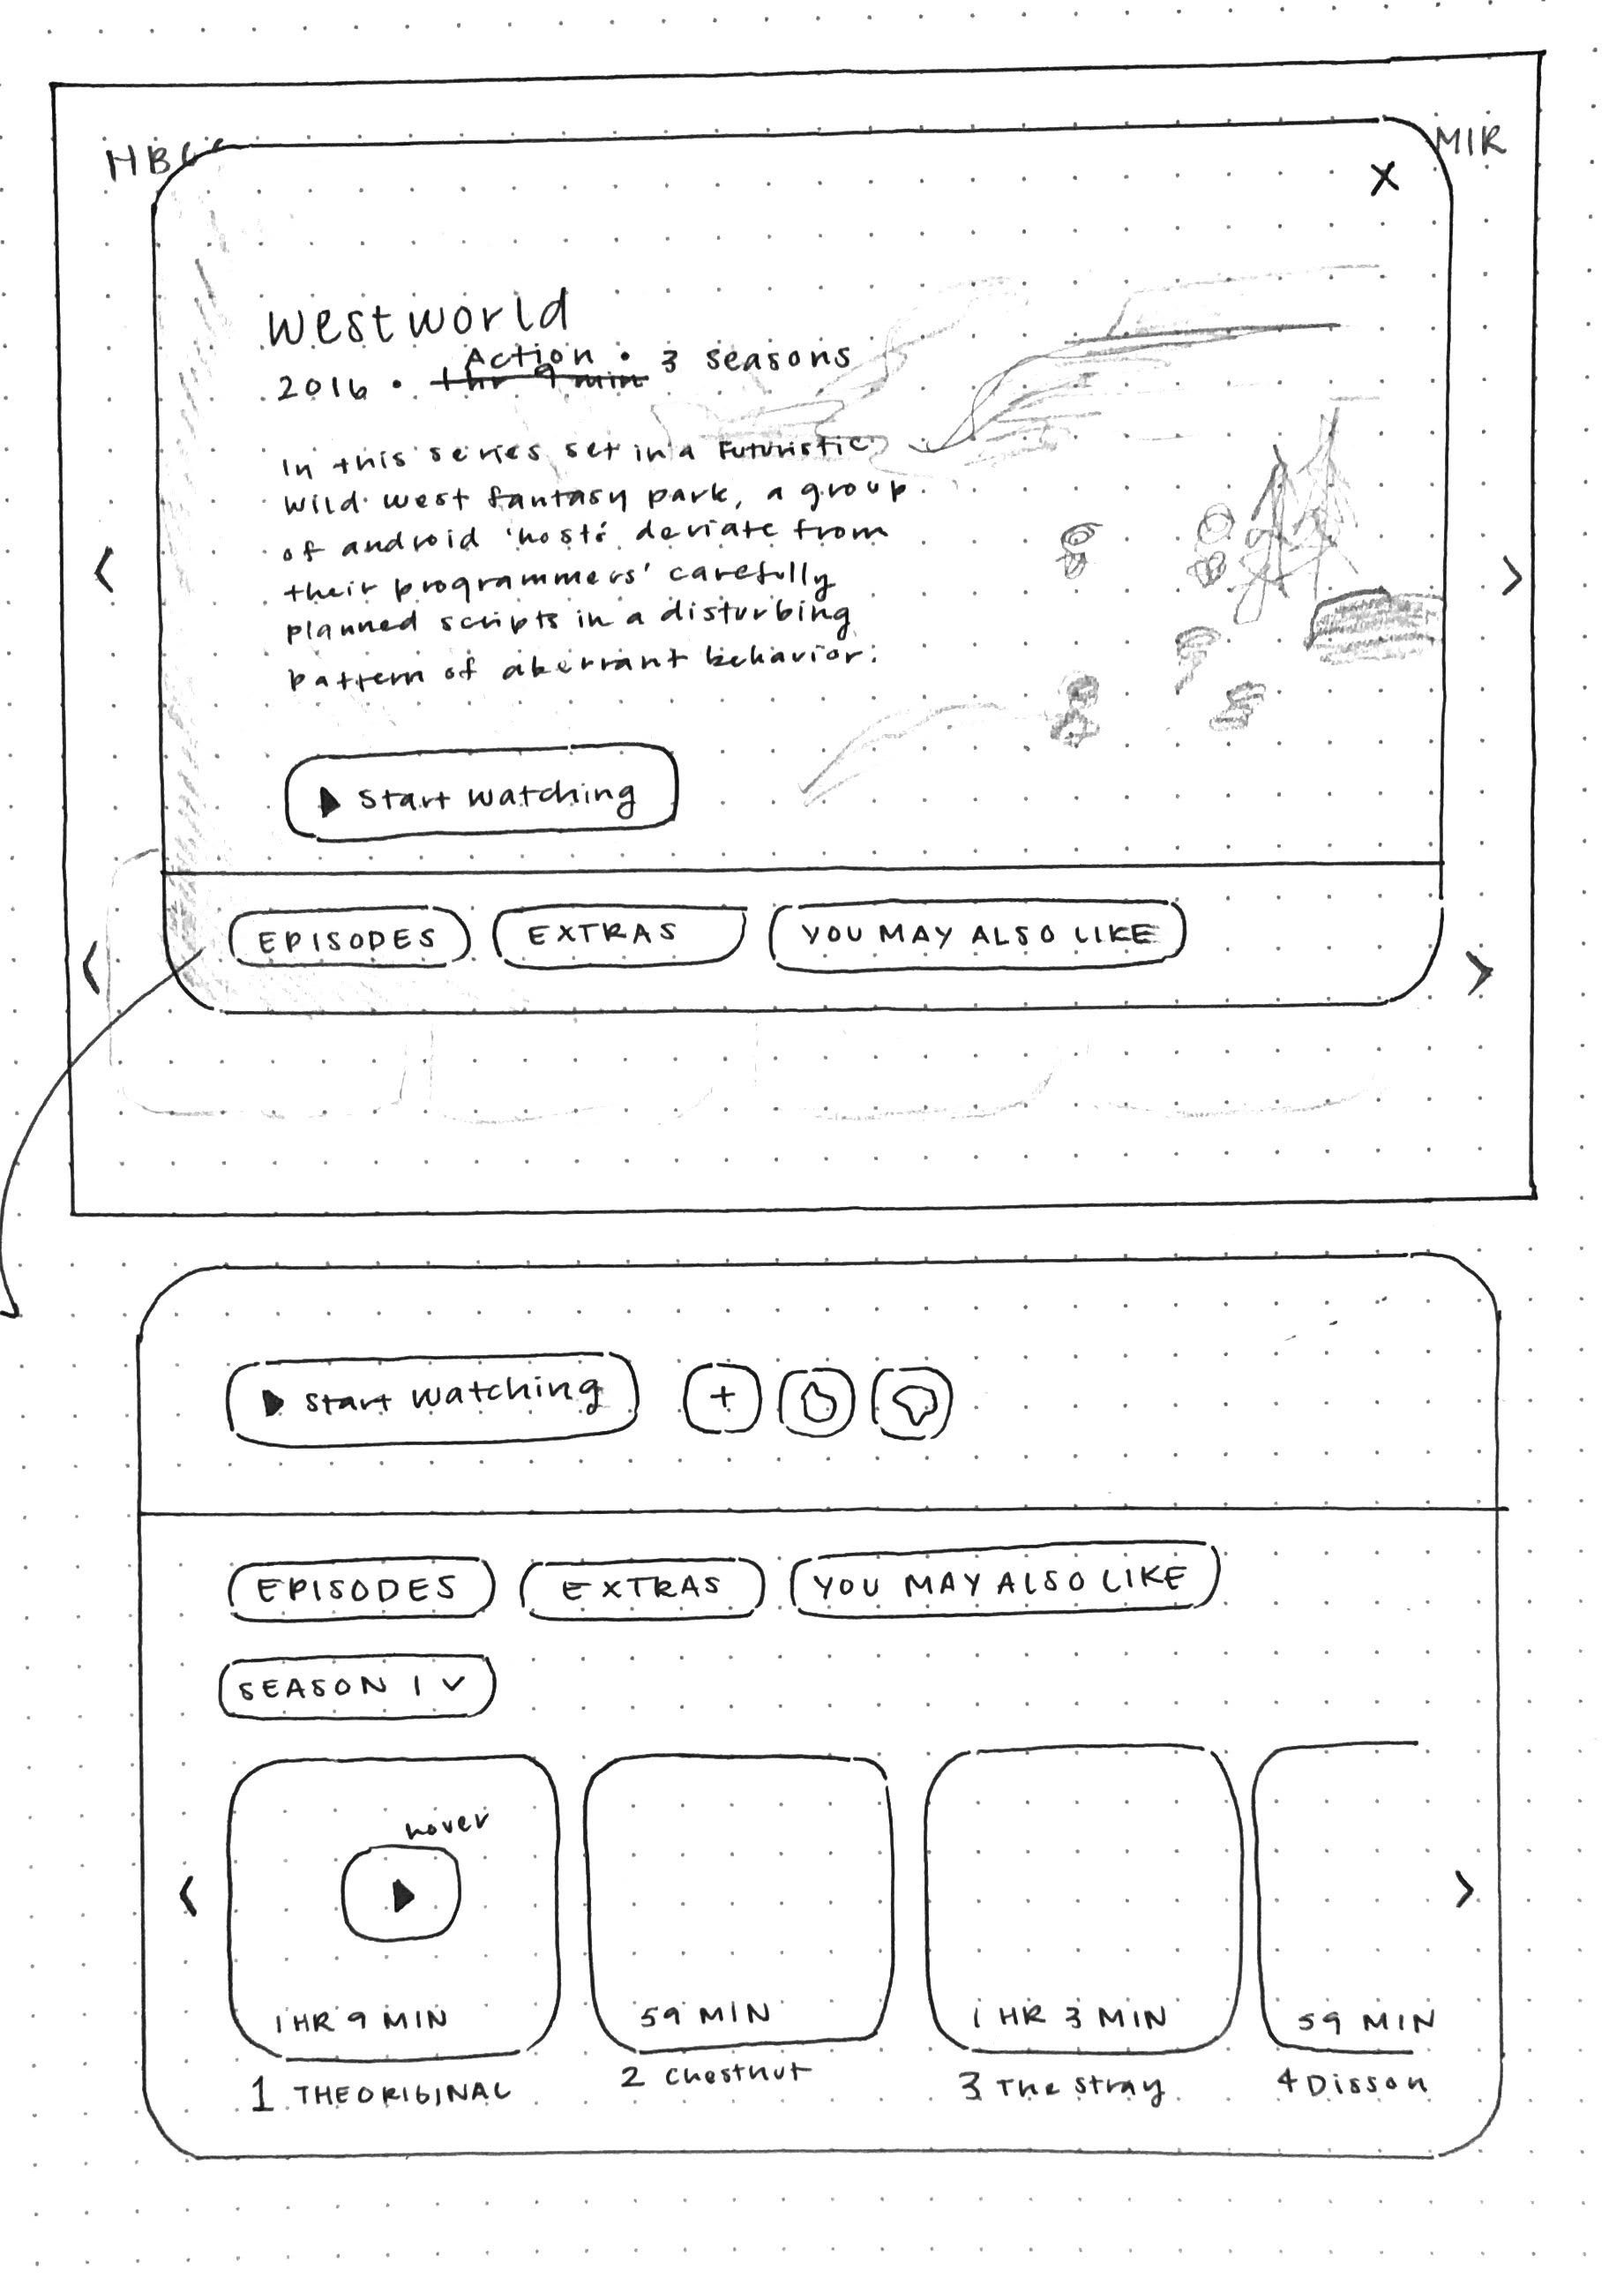 MIR
X
westworld
Action •
2016 • 1 hr 9 min 3 seasons
In this series set in a Futuristic
Wild west fantasy park, a group
of android 'hosts' deviate from
their programmers' carefully
planned scripts in a disturbing
pattern of aberrant behavior.
Start watching
EPISODES EXTRAS YOU MAY ALSO LIKE
Start watching +
EPISODES EXTRAS YOU MAY ALSO LIKE
SEASON 1
hover
1 HR 9 MIN 59 MIN 1 HR 3 MIN 59 MIN
1 THE ORIGINAL 2 Chestnut 3 The Stray 4 Disson